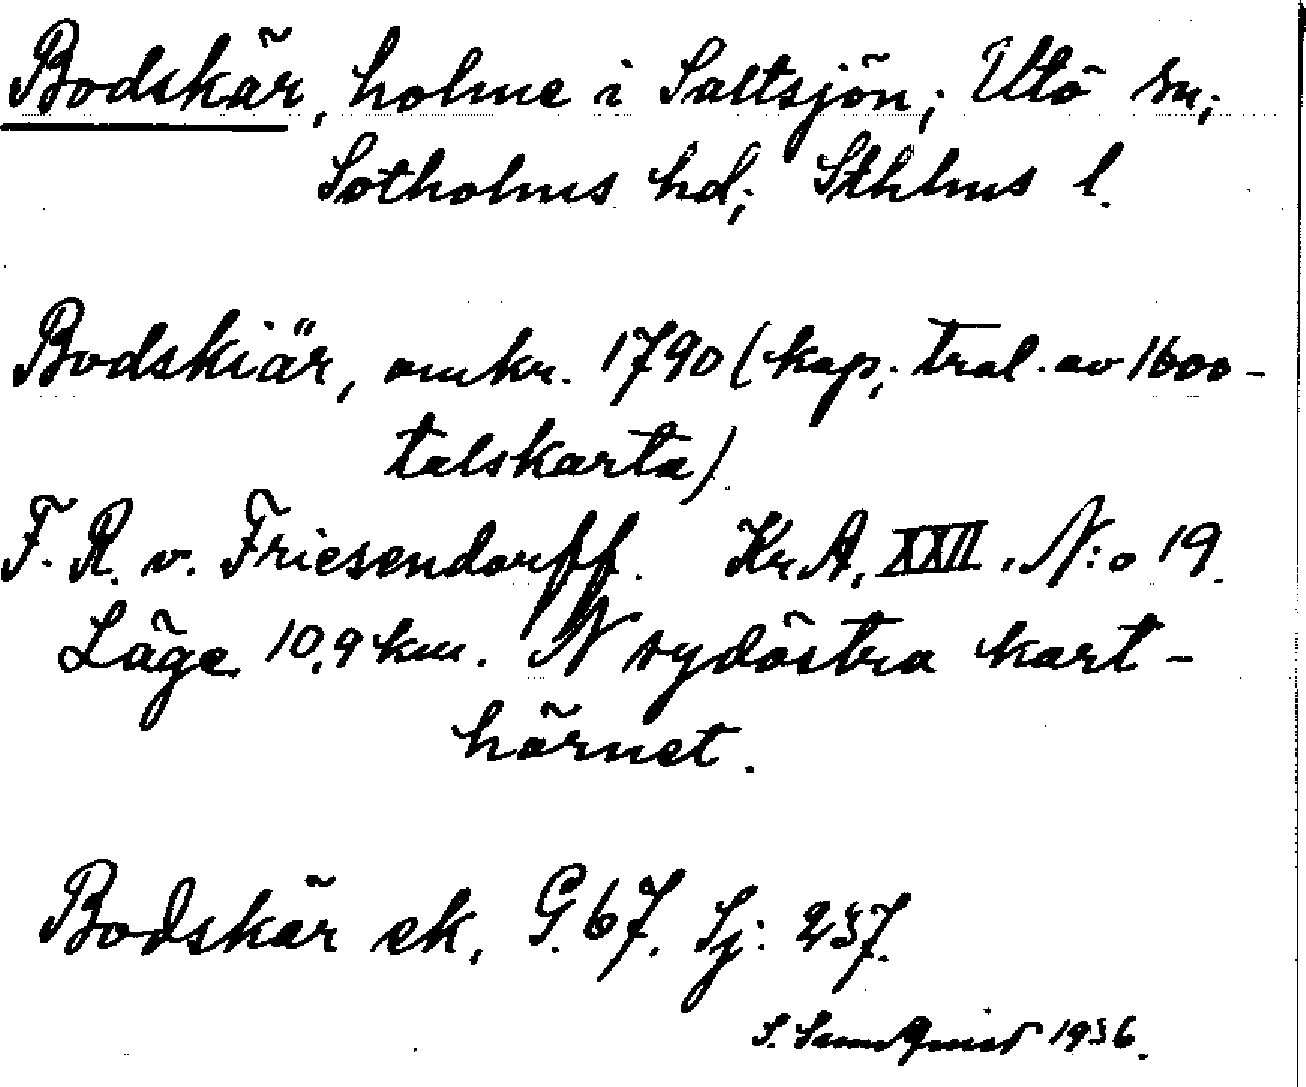 Bodskär, holme i Saltsjön; Utö sn;
Sotholms hd; Sthlms l.
Bodskiär, omkr. 1790 (kap; tral. av 1600-
talskarta).
F. R. v. Friesendorff. Kr. A. XXII. N:o 19.
Läge 10,9 km. N sydöstra kart-
hörnet.
Bodskär ek. G. 67. Sj: 237.
S. Sundquist 1936.